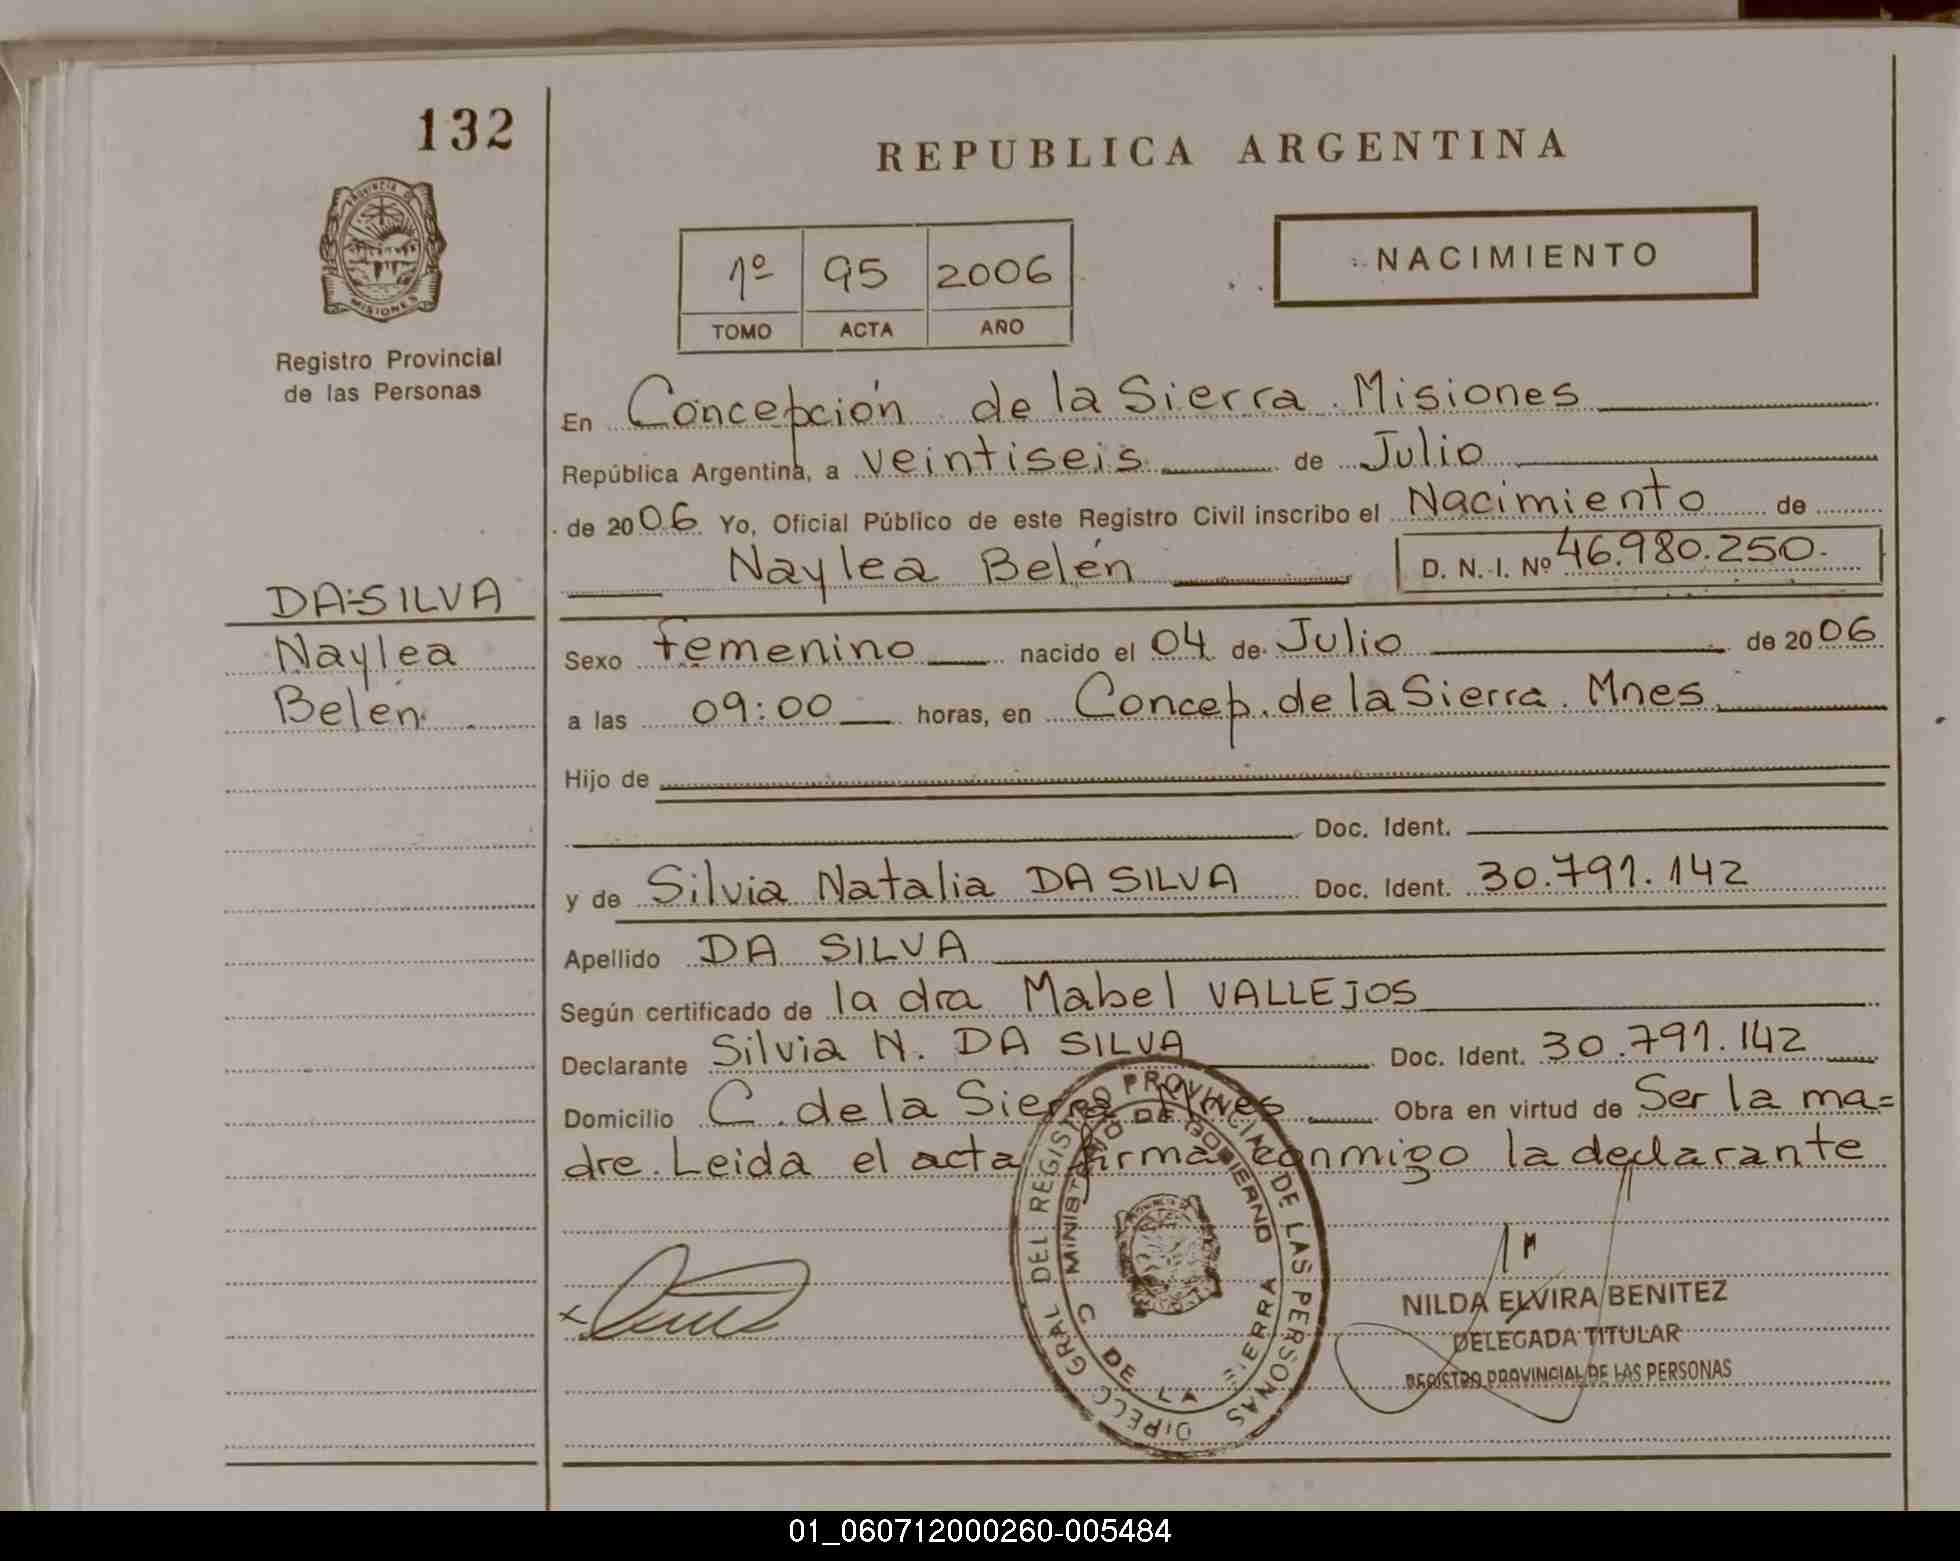 132
PROVINCIA DE
MISIONES
Registro Provincial
de las Personas
DA SILVA
Naylea
Belén
REPUBLICA ARGENTINA
1º 95 2006
TOMO ACTA AÑO
NACIMIENTO
En Concepción de la Sierra. Misiones
República Argentina, a veintiseis de Julio
de 2006 Yo, Oficial Público de este Registro Civil inscribo el Nacimiento de
Naylea Belén D. N. I. Nº 46.980.250.
Sexo femenino nacido el 04 de Julio de 2006
a las 09:00 horas, en Concep. de la Sierra. Mnes
Hijo de
Doc. Ident.
y de Silvia Natalia DA SILVA Doc. Ident. 30.791.142
Apellido DA SILVA
Según certificado de la dra Mabel VALLEJOS
Declarante Silvia N. DA SILVA Doc. Ident. 30.791.142
Domicilio C. de la Sierra Mnes Obra en virtud de Ser la ma=
dre. Leida el acta firma conmigo la declarante
DIRECC GRAL DEL REGISTRO PROVINCIAL DE LAS PERSONAS
MINISTERIO DE GOBIERNO
C DE LA SIERRA
NILDA ELVIRA BENITEZ
DELEGADA TITULAR
REGISTRO PROVINCIAL DE LAS PERSONAS
01_060712000260-005484